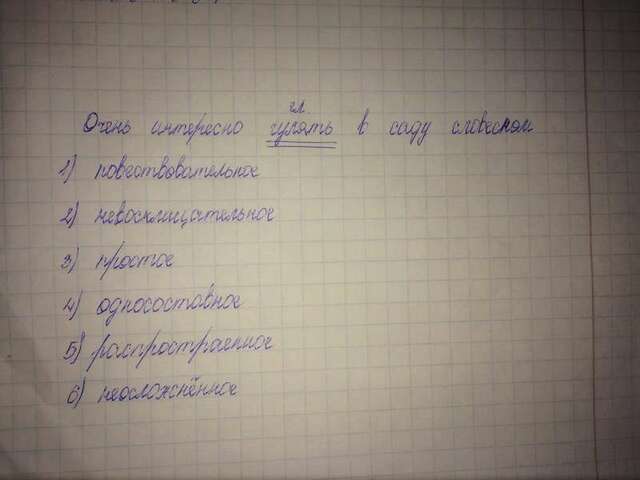 гл
Очень интересно гулять в саду словесном
1) повествовательное
2) невосклицательное
3) простое
4) односоставное
5) распространенное
6) неосложнённое